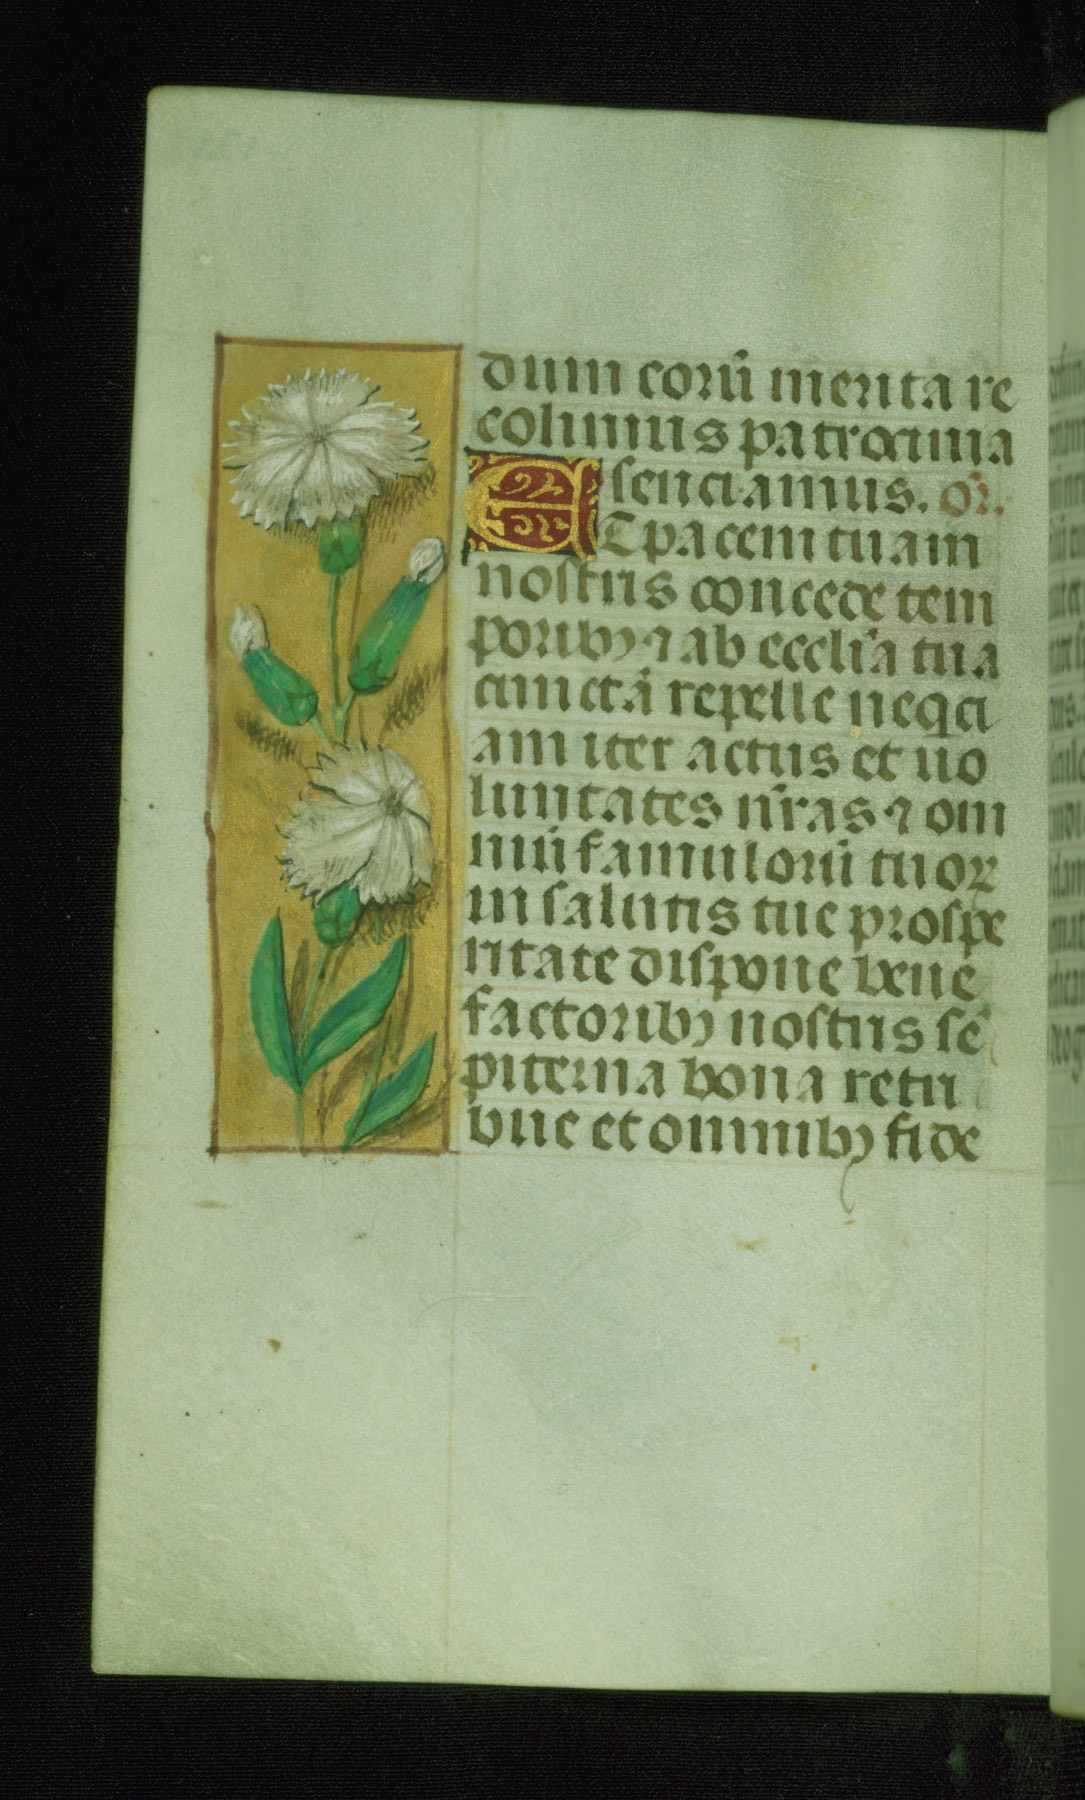 dum corū merita re
colimus patrocinia
senciamus. Or̄.
Et pacem tuam
nostris concede tem
poribꝫ ⁊ ab ecclīa tua
cunctā repelle neqͥci
am iter actus et uo
luntates nr̄as ⁊ om
niū famulorū tuoꝝ
in salutis tue prospe
ritate dispone bene
factoribꝫ nostris sē
piterna bona retri
bue et omnibꝫ fide